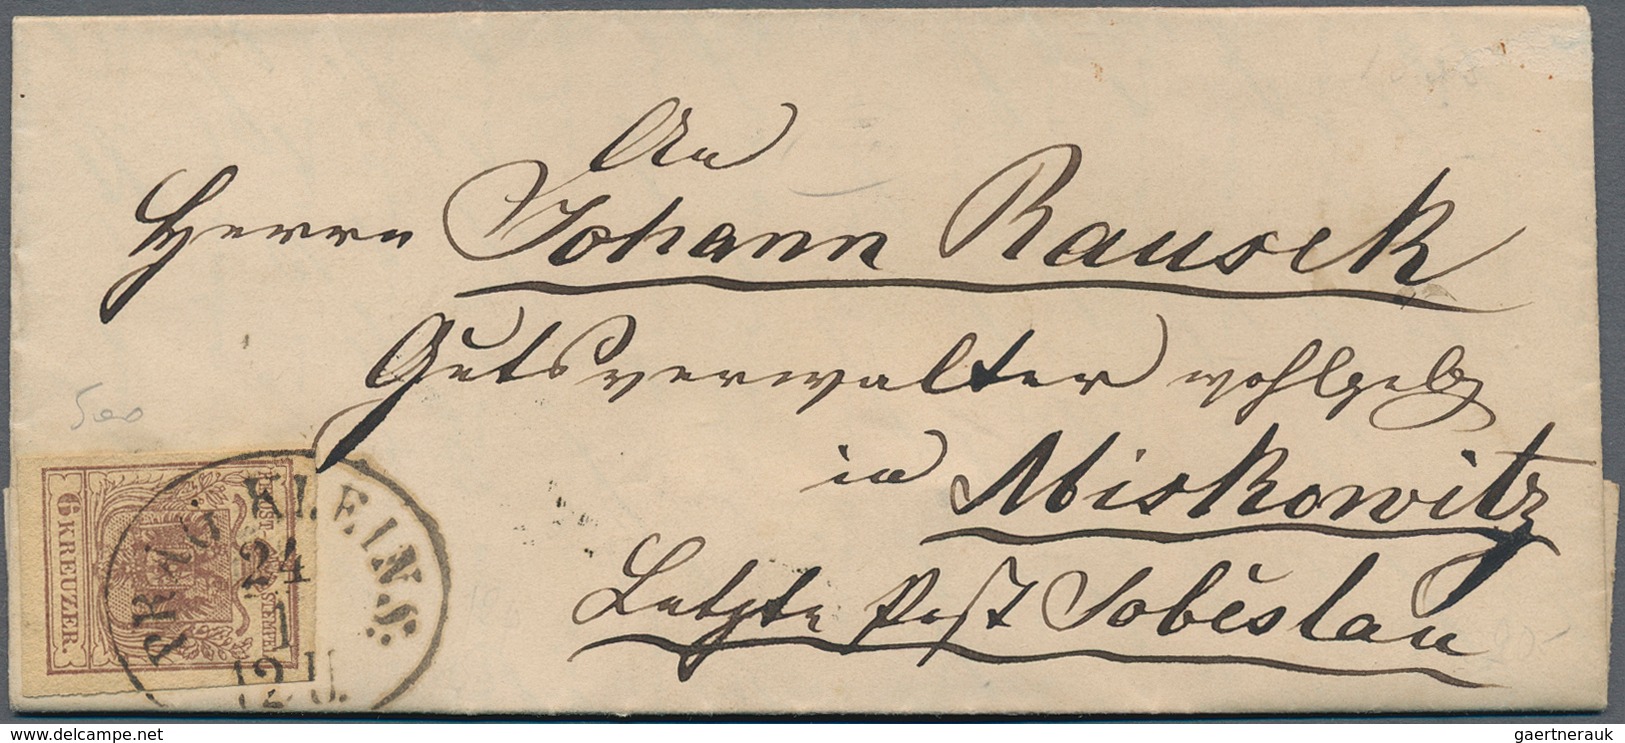 An
Herrn Johann Rausek
Gutsverwalter wohlgeb
in Miskowitz
Letzte Post Soběslau
500
6 KREUZER.
KK POST-STEMPEL
PRAG KLEINS.
24
1
12 U.
delcampe.net
gaertnerauk